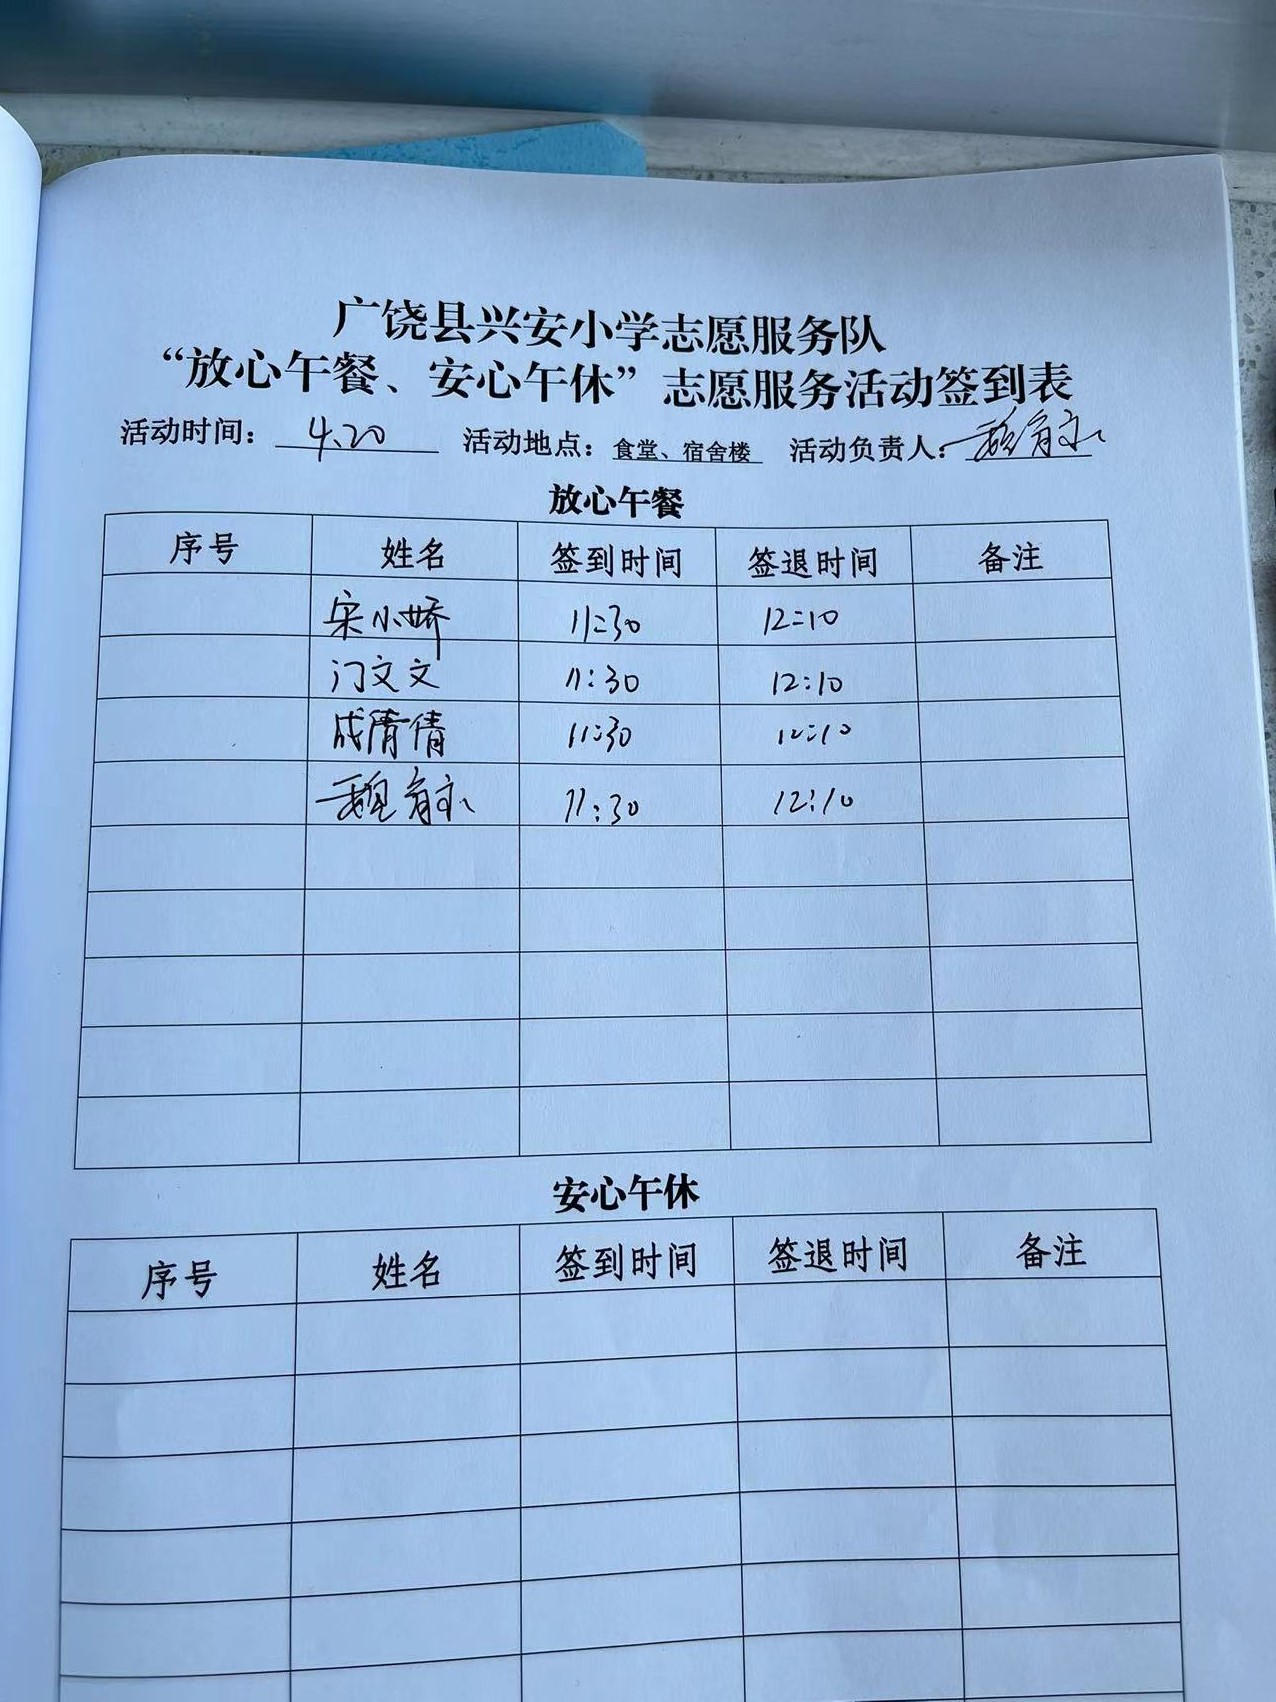 广饶县兴安小学志愿服务队
“放心午餐、安心午休”志愿服务活动签到表
活动时间：4.20 活动地点：食堂、宿舍楼 活动负责人：
放心午餐
序号 姓名 签到时间 签退时间 备注
宋小娇 11:30 12:10
门文文 11:30 12:10
成倩倩 11:30 12:10
11:30 12:10
安心午休
序号 姓名 签到时间 签退时间 备注